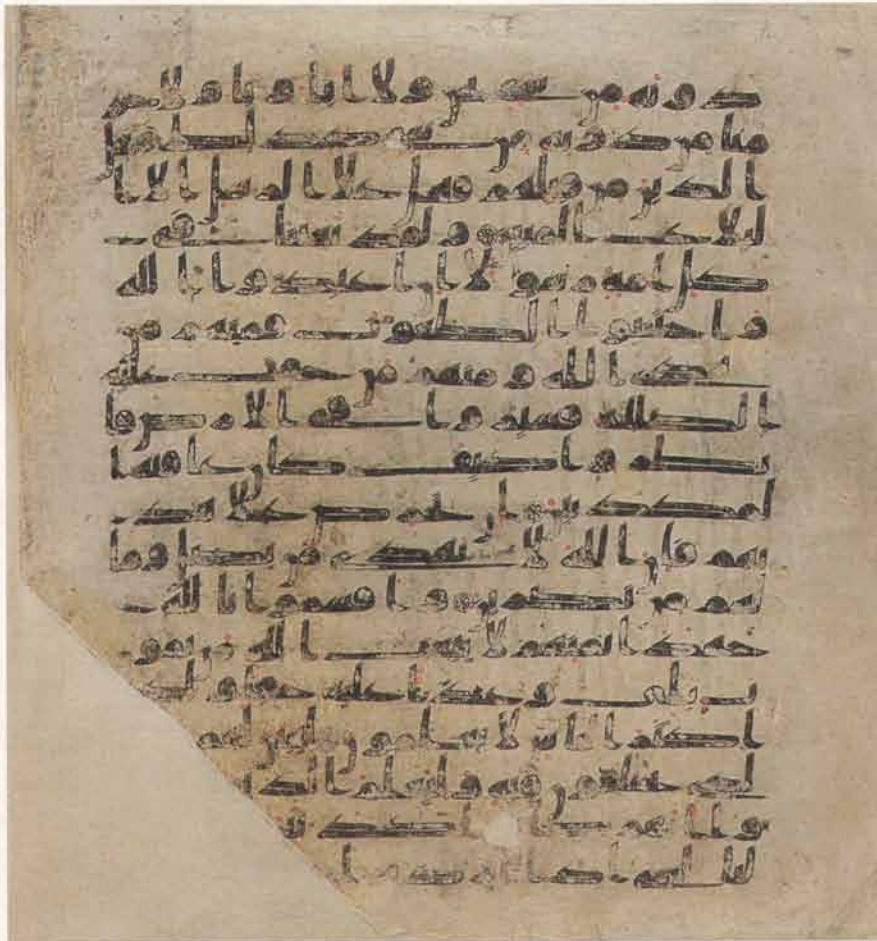 دونه من شى نحن ولا اباونا ولا حر
منا من دونه من شى كذلك فعل
الذين من قبلهم فهل على الرسل الا ا
لبلغ المبين ولقد بعثنا فى
كل امه رسولا ان اعبدوا الله
واجتنبوا الطغوت فمنهم من
هدى الله ومنهم من حقت عليه
الضلله فسيروا فى الارض فا
نظروا كيف كان عقبه ا
لمكذبين ان تحرص على هد
يهم فان الله لا يهدى من يضل وما
لهم من نصرين واقسموا بالله
جهد ايمنهم لا يبعث الله من يمو
ت بلى وعدا عليه حقا ولكن
اكثر الناس لا يعلمون ليبين لهم
الذى يختلفون فيه وليعلم الذين
كفروا انهم كانوا